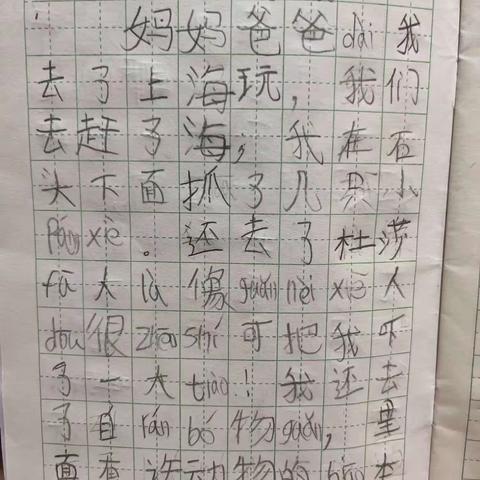 妈妈爸爸dài我
去了上海玩，我们
去赶了海，我在石
头下面抓了几只小
páng xiè。还去了杜莎
fū人là像guǎn nèi xiē人
dōu很zhēn shí可把我吓
了一大tiào！我还去
了自rán bó物guǎn，里
面有许动物的biāo本